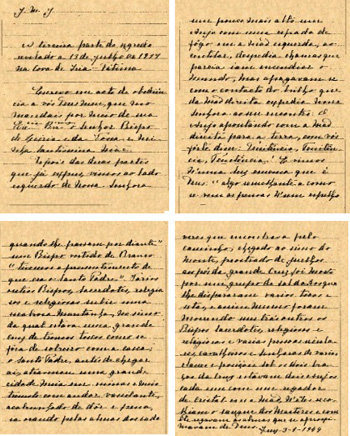 J. M. J.
A terceira parte do segredo
revelado a 13 de julho de 1917
na Cova da Iria-Fátima
Escrevo em acto de obediên
cia a vós Deus meu, que mo
mandais por meio de sua
Ex.cia Rev.ma o Senhor Bispo
de Leiria e da Vossa e mi
nha Santíssima Mãe.
Depois das duas partes
que já expus, vimos ao lado
esquerdo de Nossa Senhora
um pouco mais alto um
Anjo com uma espada de
fôgo em a mão esquerda; ao
centilar, despedia chamas que
parecia iam encendiar o
mundo; mas apagavam-se
com o contacto do brilho que
da mão direita expedia Nossa
Senhora ao seu encontro: O
Anjo apontando com a mão
direita para a terra, com voz
forte disse: Penitência, Penitên
cia, Penitência! E vimos
n'uma luz emensa que é
Deus: "algo semelhante a como
se vêem as pessoas n'um espelho
quando lhe passam por diante"
um Bispo vestido de Branco
"tivemos o pressentimento de
que era o Santo Padre". Varios
outros Bispos, Sacerdotes, religio
sos e religiosas subir uma
escabrosa montanha, no cimo
da qual estava uma grande
Cruz de troncos toscos como se
fôra de sobreiro com a casca;
o Santo Padre, antes de chegar
aí, atravessou uma grande
cidade meia em ruinas e meio
trémulo com andar vacilante,
acabrunhado de dôr e pena,
ia orando pelas almas dos cada
veres que encontrava pelo
caminho; chegado ao cimo do
monte, prostrado de juelhos
aos pés da grande Cruz foi morto
por um grupo de soldados que
lhe dispararam varios tiros e
setas, e assim mesmo foram
morrendo uns trás outros os
Bispos Sacerdotes, religiosos e
religiosas e varias pessoas secula
res, cavalheiros e senhoras de varias
classes e posições. Sob os dois bra
ços da Cruz estavam dois Anjos
cada um com um regador
de cristal em a mão, n'êles reco
lhiam o sangue dos Martires e com
êle regavam as almas que se aproxi
mavam de Deus.
Tuy-3-1-1944